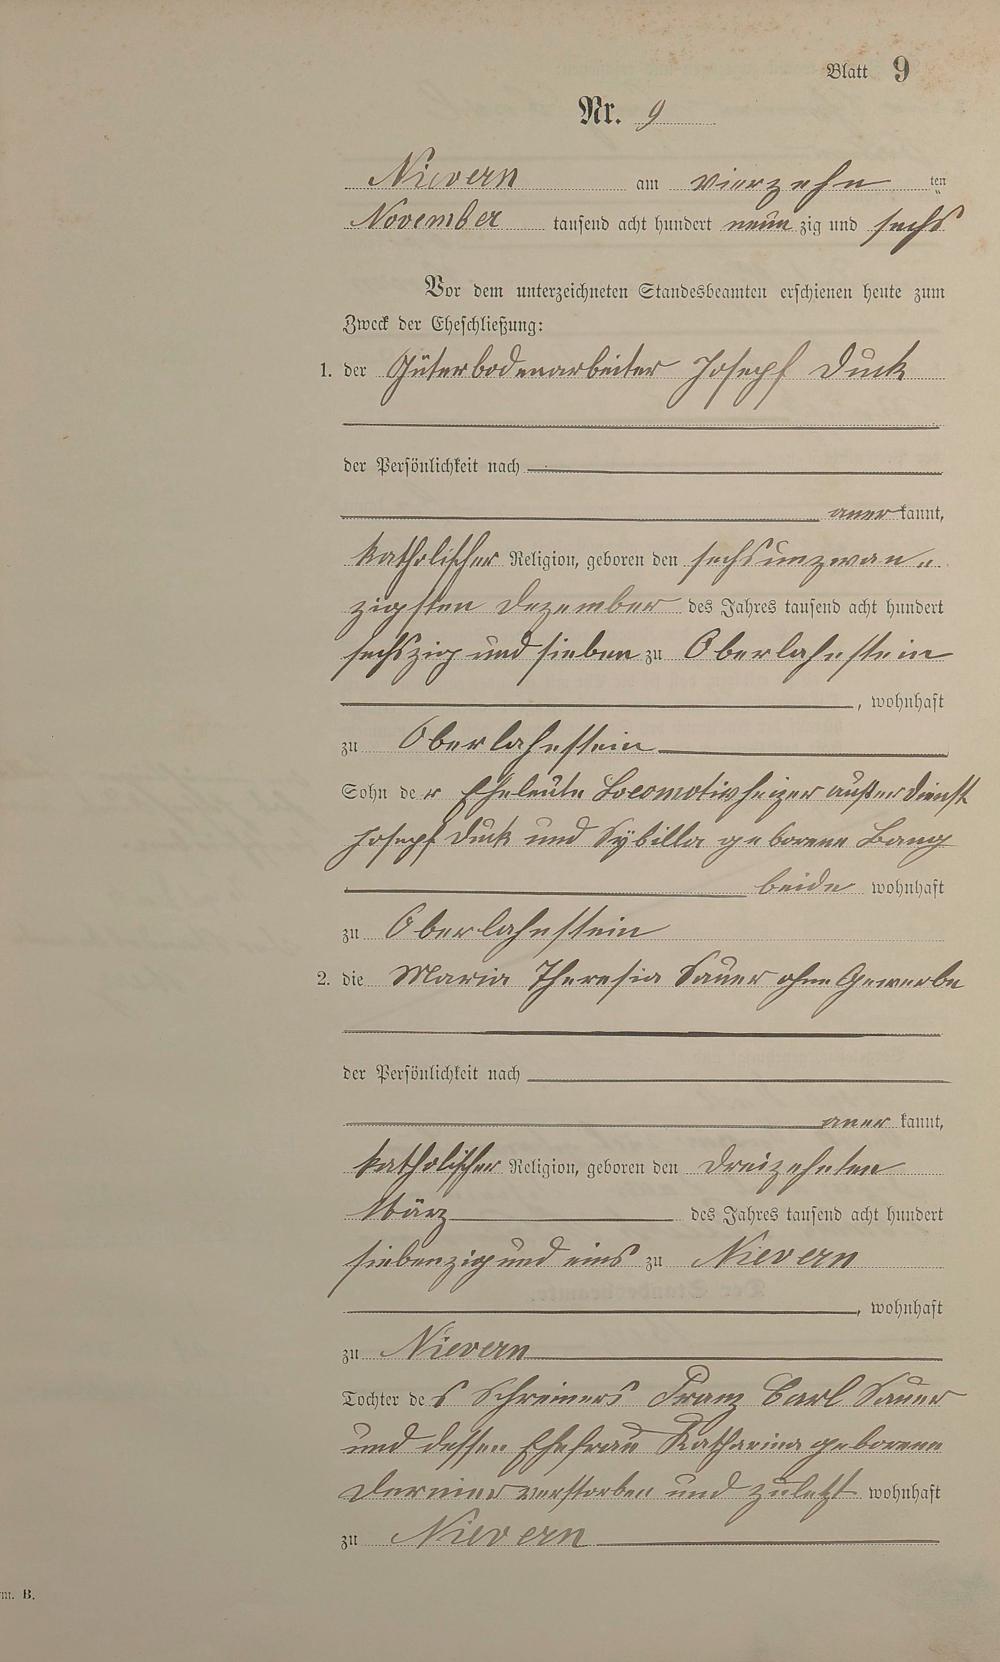 Blatt 9
Nr. 9
Nievern am vierzehn ten
November tausend acht hundert neun zig und sechs
Vor dem unterzeichneten Standesbeamten erschienen heute zum
Zweck der Eheschließung:
1. der Güterbodenarbeiter Joseph Duck
der Persönlichkeit nach
aner kannt,
katholischer Religion, geboren den sechsunzwan„
zigsten Dezember des Jahres tausend acht hundert
sechszig und sieben zu Oberlahnstein
, wohnhaft
zu Oberlahnstein
Sohn de r Eheleute Locomotivheizer außer Dienst
Joseph Duck und Sybilla geborene Bang
beide wohnhaft
zu Oberlahnstein
2. die Maria Theresia Sauer ohne Gewerbe
der Persönlichkeit nach
aner kannt,
katholischer Religion, geboren den dreizehnten
März des Jahres tausend acht hundert
siebenzig und eins zu Nievern
, wohnhaft
zu Nievern
Tochter de s Schreiners Franz Carl Sauer
und dessen Ehefrau Katharina geborene
verstorben und zuletzt wohnhaft
zu Nievern
B.